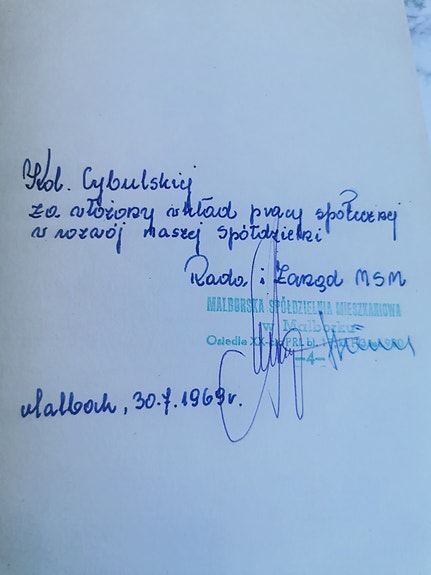 Kol. Cybulskiej
za włożony wkład pracy społecznej
w rozwój naszej Spółdzielni
Rada i Zarząd MSM
MALBORSKA SPÓŁDZIELNIA MIESZKANIOWA
w Malborku
Osiedle XX-lecia PRL bl.
—4—
Malbork, 30.7.1969r.